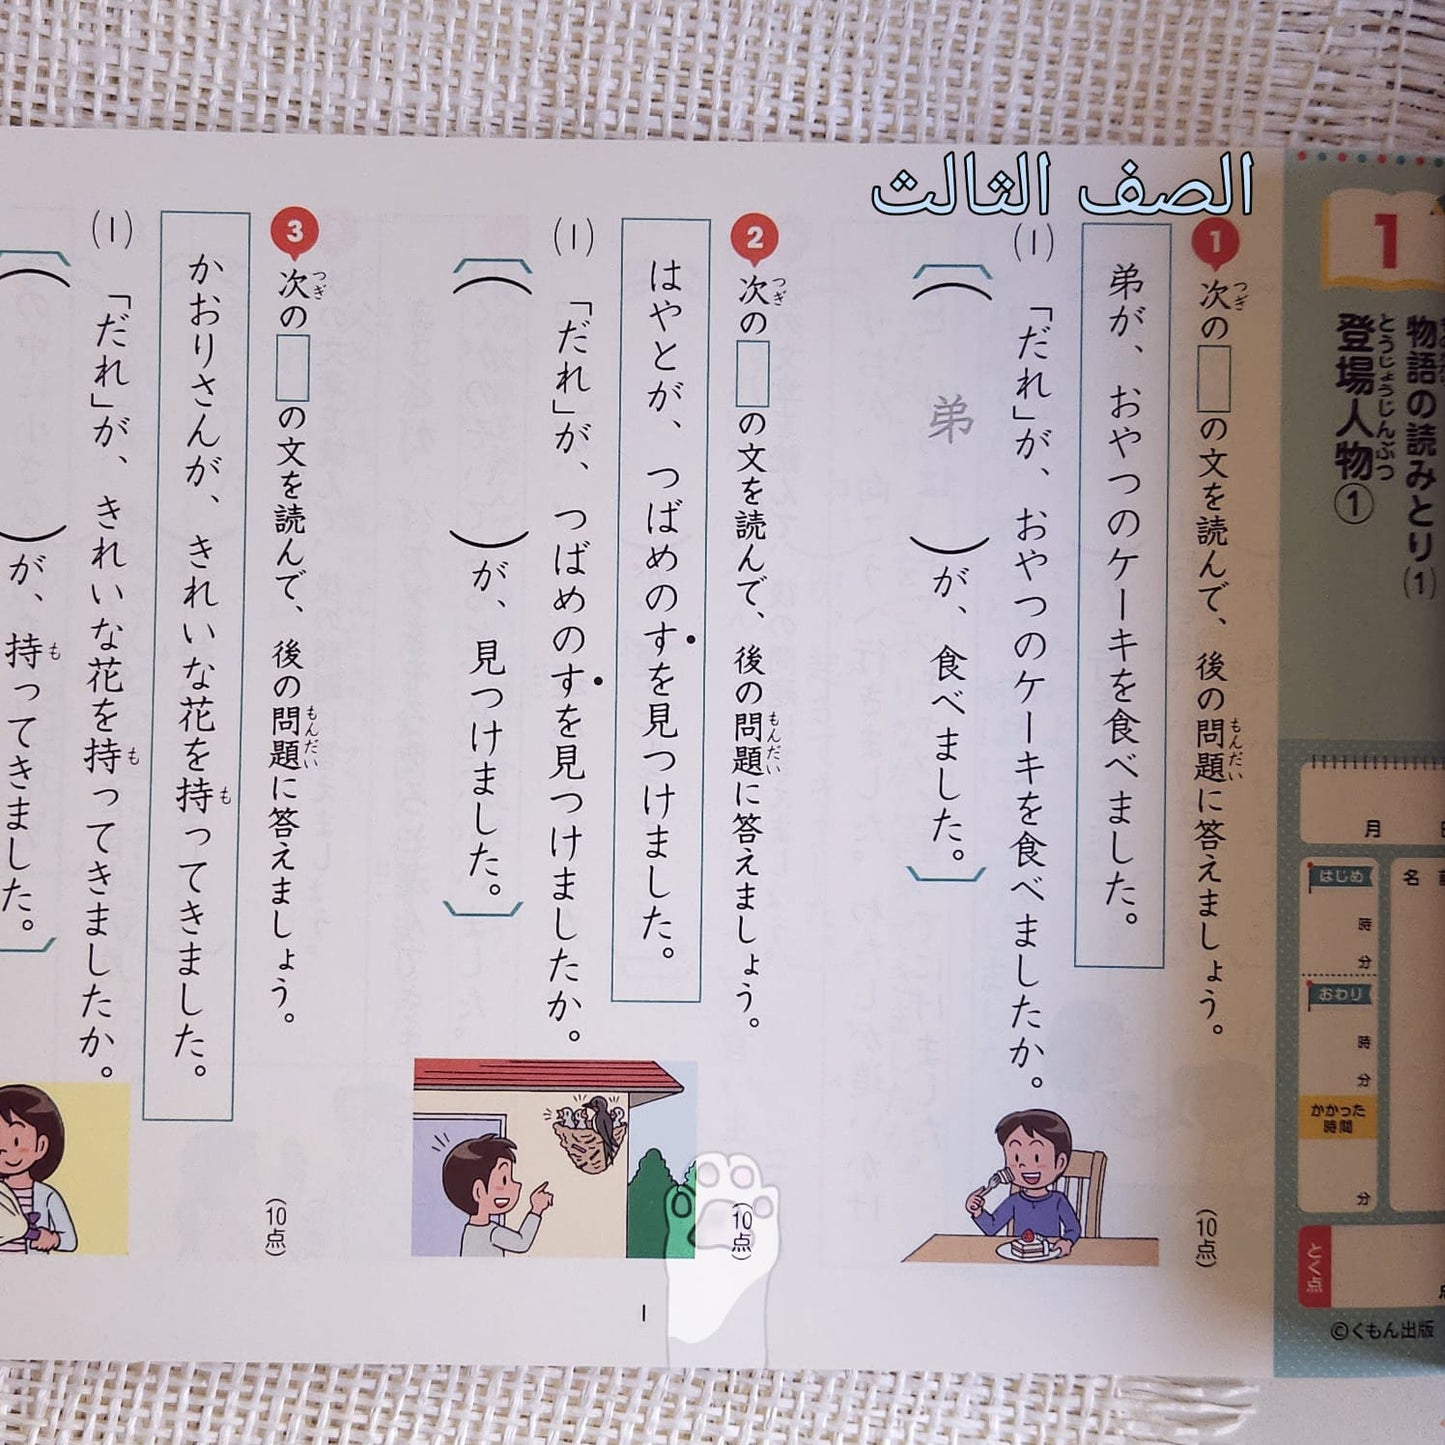 الصف الثالث
1
物語の読みとり(1)
とうじょうじんぶつ
登場人物①
月
名
はじめ
時
分
おわり
時
分
かかった
時間
分
とく点
©くもん出版
1 次の□の文を読んで、後の問題に答えましょう。
つぎ
もんだい
(10点)
弟が、おやつのケーキを食べました。
(1) 「だれ」が、おやつのケーキを食べましたか。
(弟)が、食べました。
2 次の□の文を読んで、後の問題に答えましょう。
つぎ
もんだい
(10点)
はやとが、つばめのすを見つけました。
(1) 「だれ」が、つばめのすを見つけましたか。
( )が、見つけました。
3 次の□の文を読んで、後の問題に答えましょう。
つぎ
もんだい
(10点)
かおりさんが、きれいな花を持ってきました。
も
(1) 「だれ」が、きれいな花を持ってきましたか。
も
( )が、持ってきました。
も
1